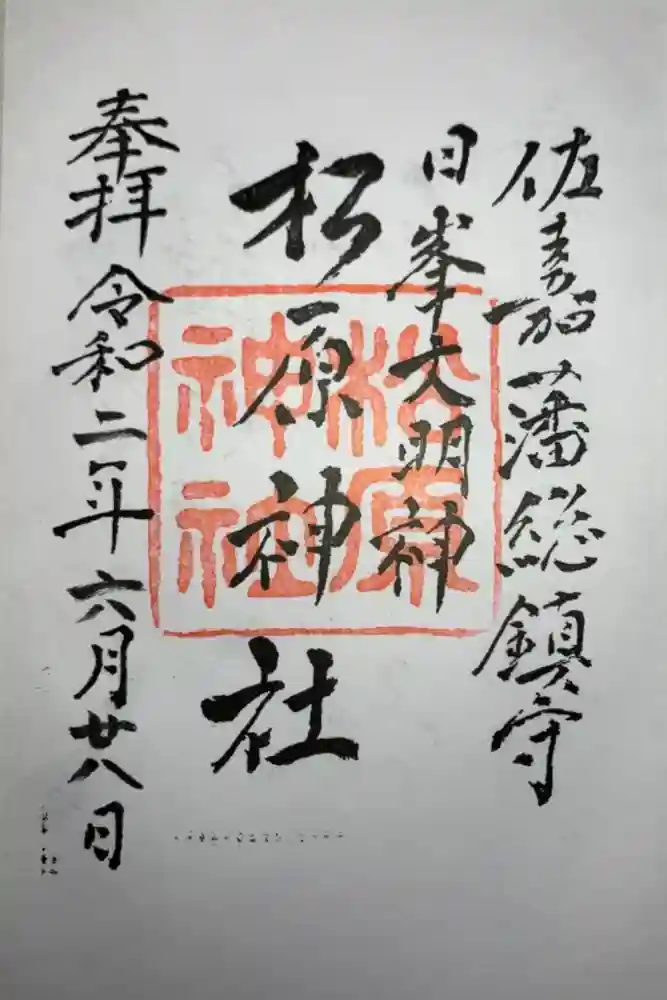 佐嘉藩総鎮守
日峯大明神
松原神社
奉拝 令和二年六月廿八日
松原神社